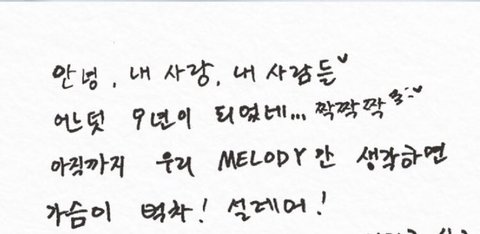 안녕, 내 사랑, 내 사람들♥
어느덧 9년이 되었네... 짝짝짝
아직까지 우리 MELODY만 생각하면
가슴이 벅차! 설레어!